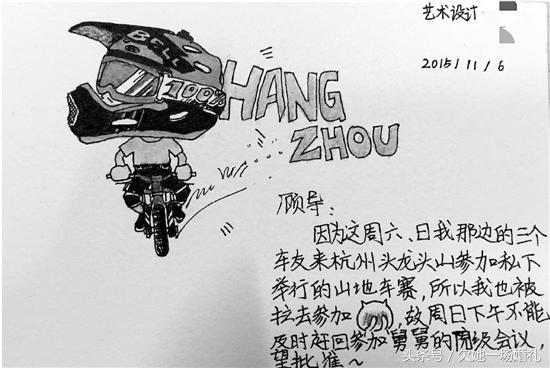 艺术设计
2015/11/6
BELL
100%
HANG
ZHOU
顾导:
因为这周六、日我那边的三个
车友来杭州头龙头山参加私下
举行的山地车赛,所以我也被
拉去参加 ,故周日下午不能
及时赶回参加舅舅的 级会议,
望批准~
头条号/欠她一场婚礼